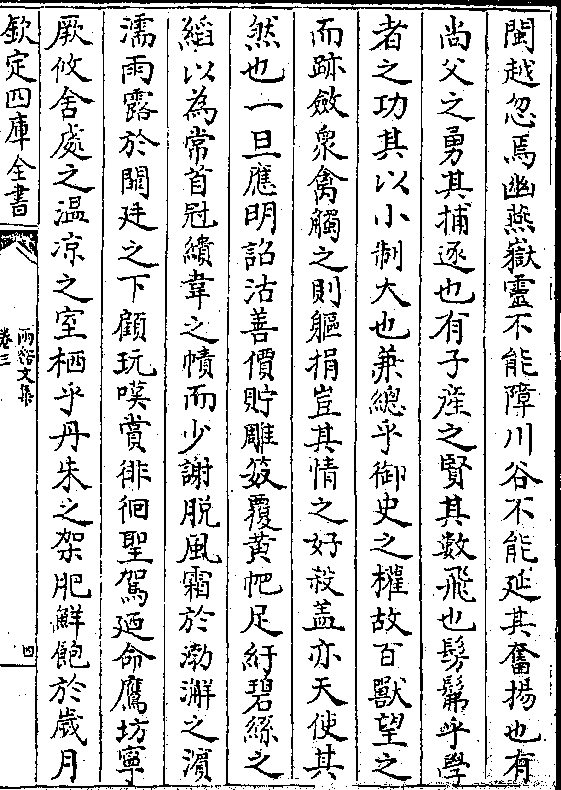 閩越忽焉幽燕嶽靈不能障川谷不能延其奮揚也有
尚父之勇其捕逐也有子產之賢其數飛也髣髴乎學
者之功其以小制大也兼總乎御史之權故百獸望之
而跡斂衆禽觸之則軀捐豈其情之好殺盖亦天使其
然也一旦應明詔沽善價貯雕笯覆黃帊足紆碧絲之
縚以為常首冠繢韋之幘而少謝脱風霜於渤澥之濵
濡雨露於闕廷之下顧玩嘆賞徘徊聖駕廼命鷹坊寧
厥攸舍處之温凉之室栖乎丹朱之架肥鮮飽於歲月
欽定四庫全書
兩谿文集
卷三
四